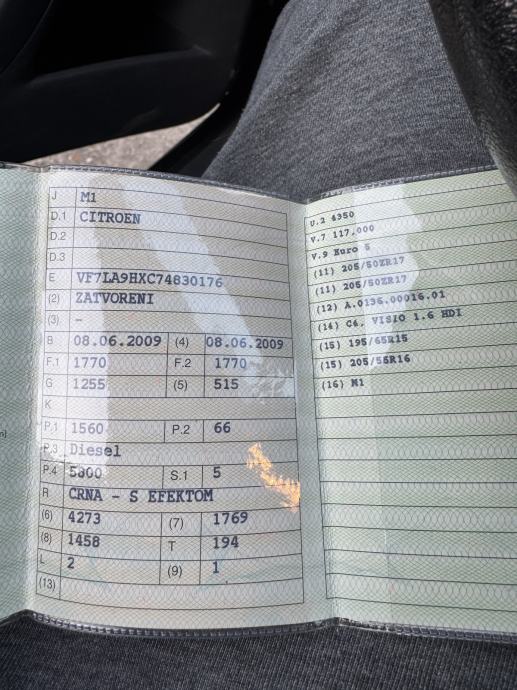 J M1
D.1 CITROEN
D.2
D.3
E VF7LA9HXC74830176
(2) ZATVORENI
(3) –
B 08.06.2009 (4) 08.06.2009
F.1 1770 F.2 1770
G 1255 (5) 515
K
P.1 1560 P.2 66
P.3 Diesel
P.4 5800 S.1 5
R CRNA - S EFEKTOM
(6) 4273 (7) 1769
(8) 1458 T 194
L 2 (9) 1
(13)
U.2 4350
V.7 117,000
V.9 Euro 5
(11) 205/50ZR17
(11) 205/50ZR17
(12) A.0136.00016.01
(14) C4, VISIO 1.6 HDI
(15) 195/65R15
(15) 205/55R16
(16) M1